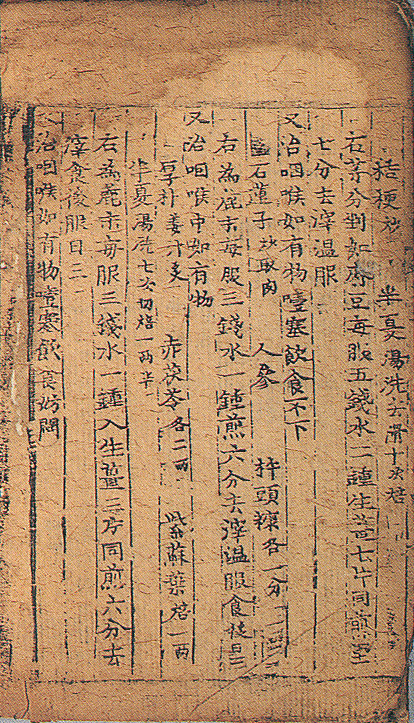 桔梗炒 半夏湯洗去滑十次焙
右等分剉如麻豆每服五錢水二鍾生薑七片同煎至
七分去滓溫服
又治咽喉如有物噎塞飲食不下
石蓮子炒取肉 人參 杵頭糠各一分
右為麄末每服三錢水一鍾煎六分去滓溫服食後日三
又治咽喉中如有物
厚朴姜汁炙 赤茯苓各二両 紫蘇葉焙一両
半夏湯洗七次切焙一両半
右為麄末每服三錢水一鍾入生薑三片同煎六分去
滓食後服日三
治咽喉如有物噎塞飲食妨悶